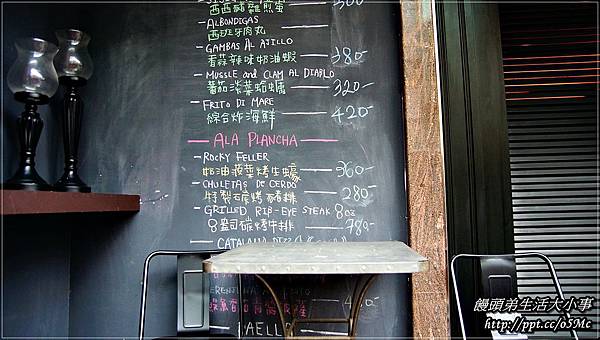 300-
- ALBONDIGAS
西班牙肉丸
- GAMBAS AL AJILLO
香蒜辣味奶油蝦 380-
- MUSSLE AND CLAM AL DIABLO
蕃茄淡菜蛤蠣 320-
- FRITO DI MARE
綜合炸海鮮 420-
ALA PLANCHA
- ROCKY FELLER
奶油菠菜烤生蠔 360-
- CHULETAS DE CERDO
特製石庫烤豬排 280-
- GRILLED RIB-EYE STEAK 8oz
8盎司碳烤牛排 780-
- CATALANA
饅頭弟生活大小事
http://ppt.cc/o5Mc